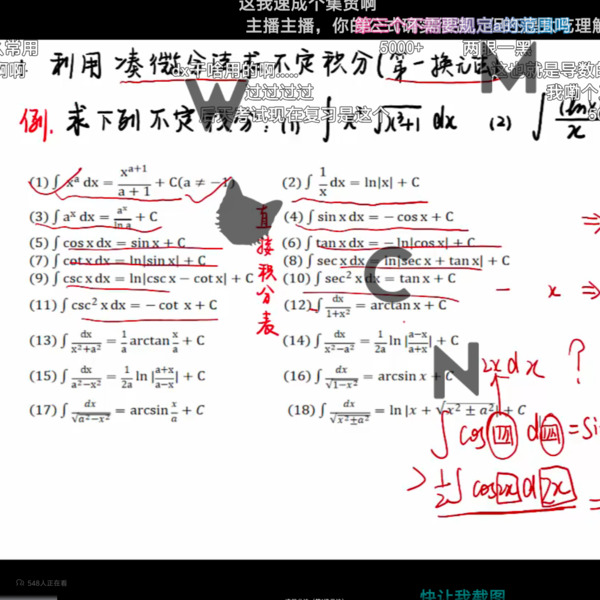 这我速成个集贸啊
主播主播,你的公式
第三个不需要规定a的范围吗
5000+ 两眼一黑
利用凑微分法求不定积分(第一换元法
dx干啥用的啊.....
也就是导数的
过过过过过
我嘞个
后天考试现在复习是这个
例. 求下列不定积分: (1) ∫ x² √(x³+1) dx (2) ∫ (ln x) / x
(1) ∫ xᵃ dx = x^(a+1)/(a+1) + C(a ≠ −1)
(2) ∫ 1/x dx = ln|x| + C
(3) ∫ aˣ dx = aˣ/ln a + C
(4) ∫ sin x dx = − cos x + C
(5) ∫ cos x dx = sin x + C
(6) ∫ tan x dx = −ln|cos x| + C
(7) ∫ cot x dx = ln|sin x| + C
(8) ∫ sec x dx = ln|sec x + tan x| + C
(9) ∫ csc x dx = ln|csc x − cot x| + C
(10) ∫ sec² x dx = tan x + C
(11) ∫ csc² x dx = − cot x + C
(12) ∫ dx/(1+x²) = arctan x + C
(13) ∫ dx/(x²+a²) = 1/a arctan x/a + C
(14) ∫ dx/(x²−a²) = 1/2a ln|(a−x)/(a+x)| + C
(15) ∫ dx/(a²−x²) = 1/2a ln|(a+x)/(a−x)| + C
(16) ∫ dx/√(1−x²) = arcsin x + C
(17) ∫ dx/√(a²−x²) = arcsin x/a + C
(18) ∫ dx/√(x²±a²) = ln |x + √(x² ± a²)| + C
直接积分表
− x ⇒
2x dx ?
= Si
1/2 ∫ cos 2x d 2x =
W
M
C
N
548人正在看
快让我截图